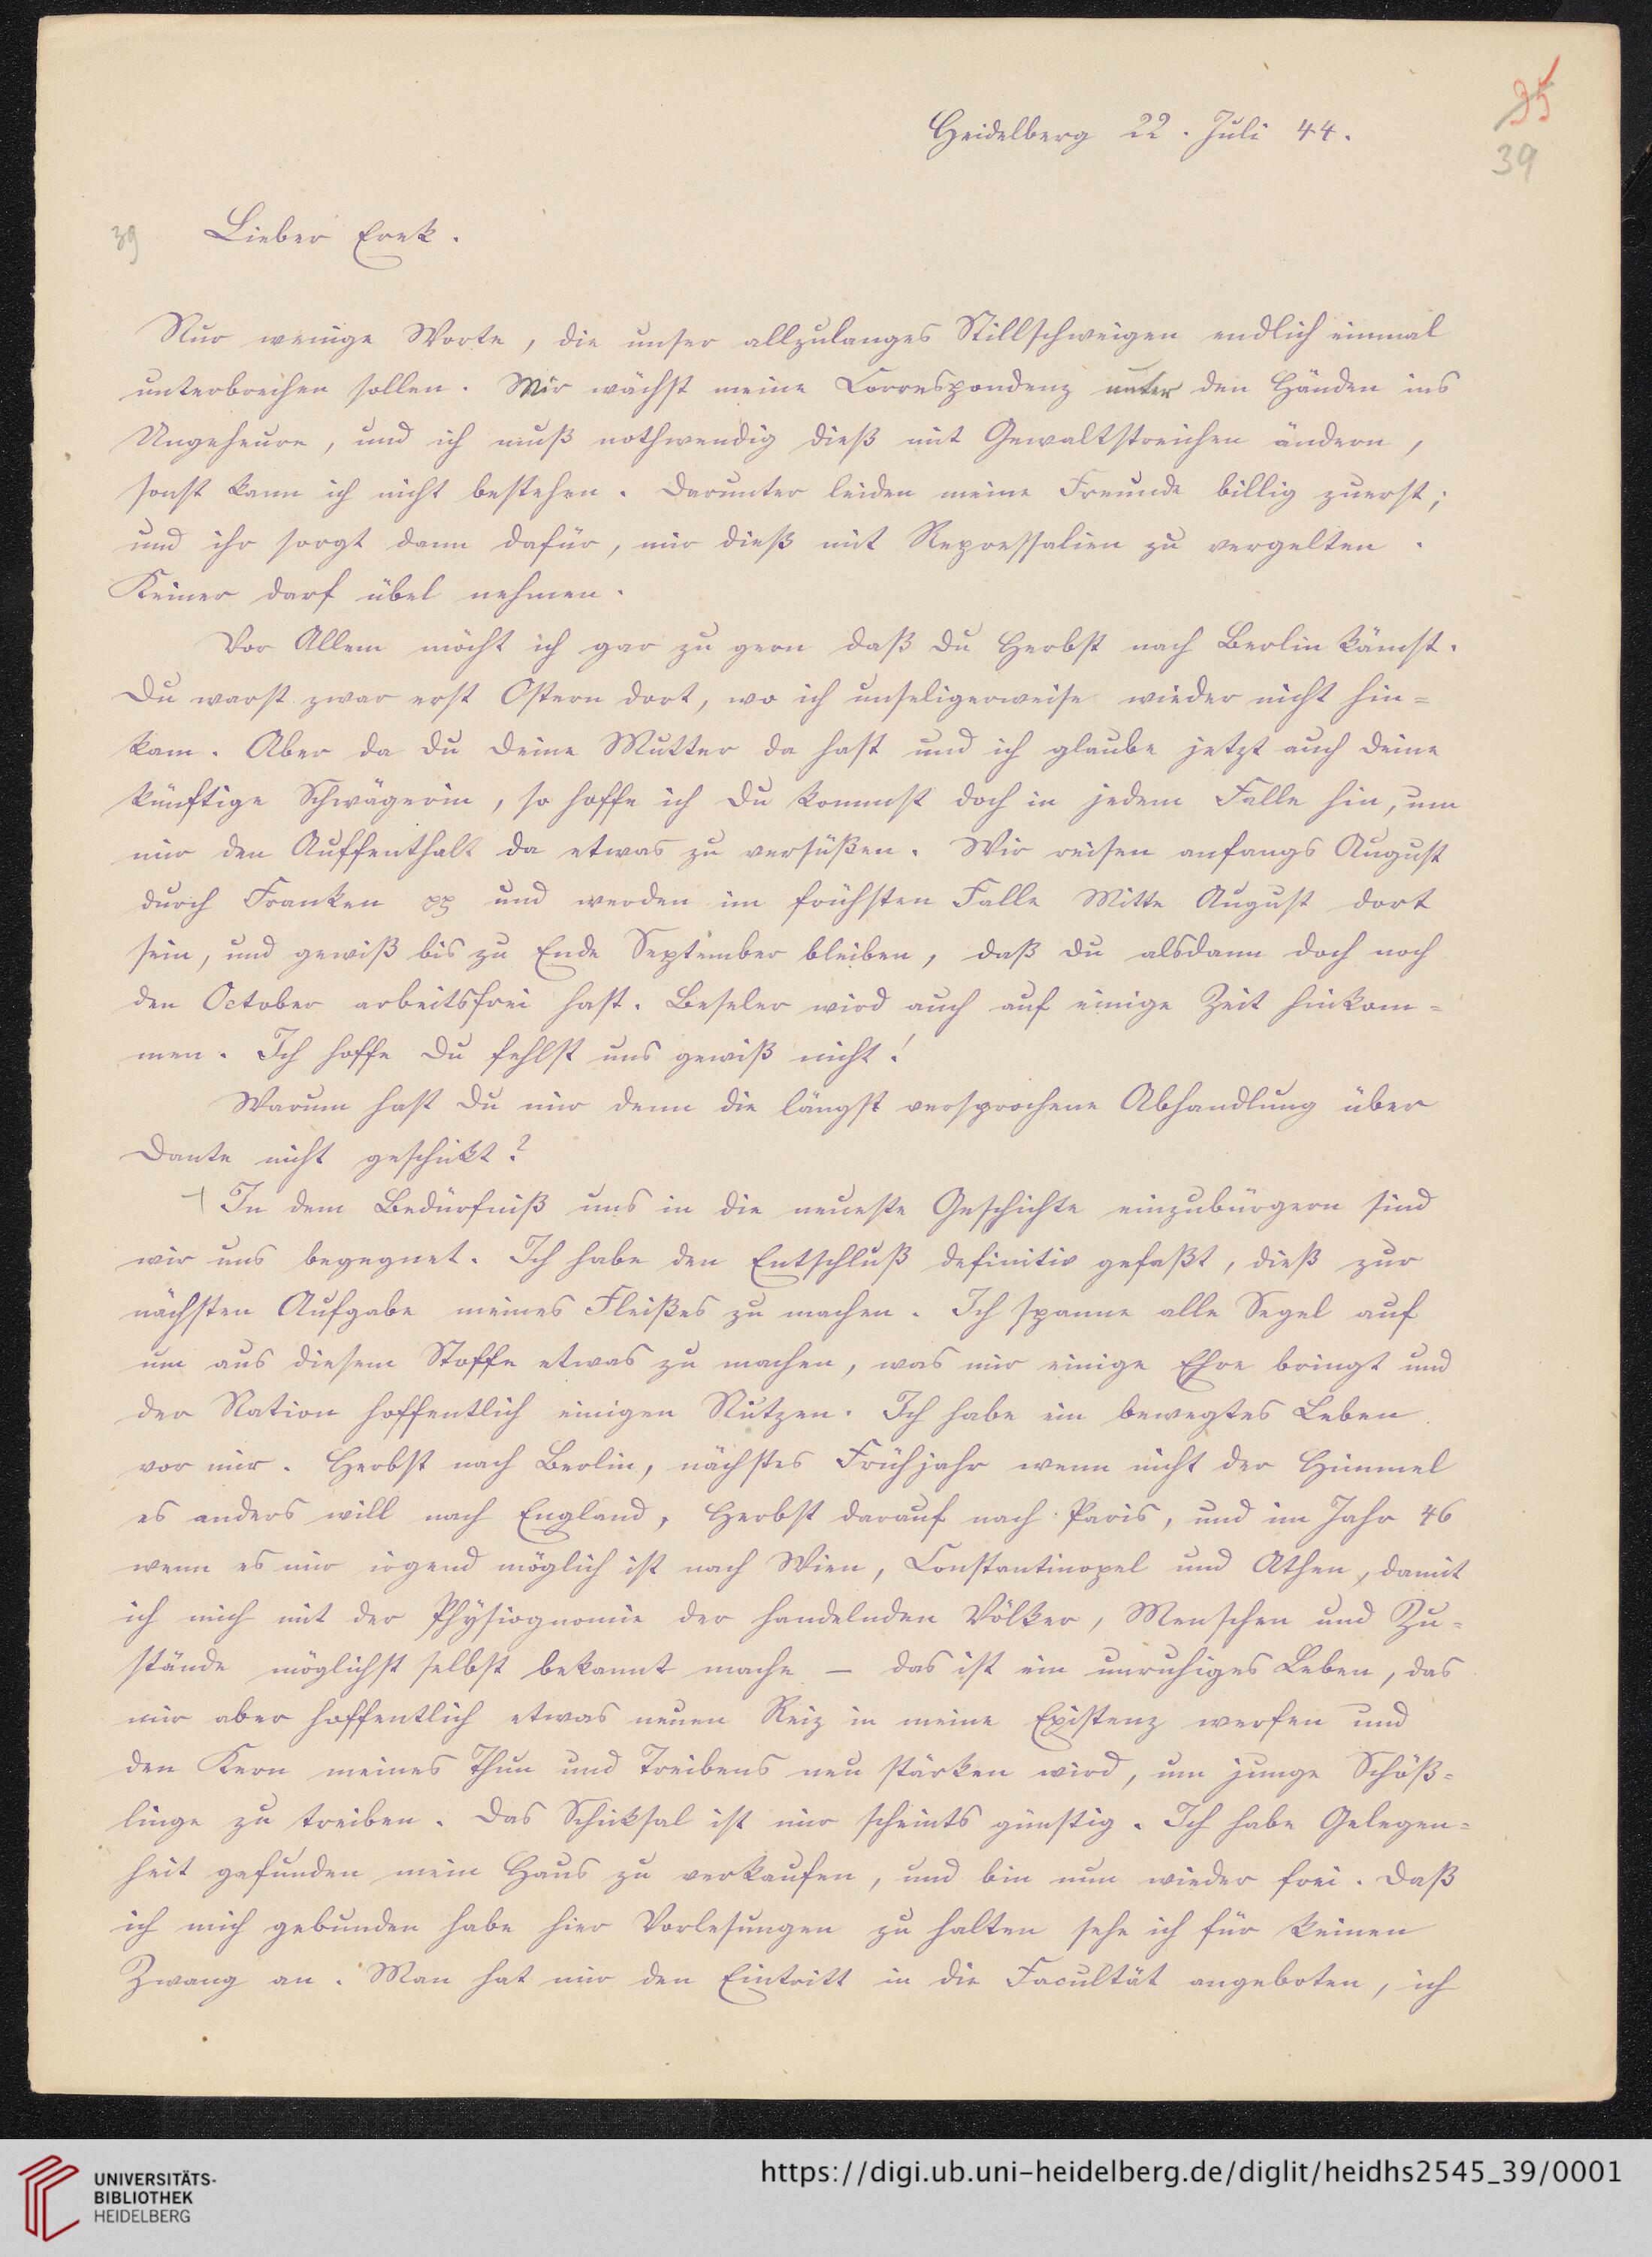 35
Heidelberg 22. Juli 44.
39
39 Lieber Freund.
Nur wenige Worte, die unser allzulanges Stillschweigen endlich einmal
unterbrechen sollen. Mir wächst meine Correspondenz unter den Händen ins
Ungeheure, und ich muß nothwendig dieß mit Gewaltstreichen ändern,
sonst kann ich nicht bestehen. Darunter leiden meine Freunde billig zuerst;
und ihr sorgt dann dafür, mir dieß mit Repressalien zu vergelten.
Keiner darf übel nehmen.
Vor Allem möcht ich gar zu gern daß Du Herbst nach Berlin kämst.
Du warst zwar erst Ostern dort, wo ich unseligerweise wieder nicht hin=
kam. Aber da Du Deine Mutter da hast und ich glaube jetzt auch Deine
künftige Schwägerin, so hoffe ich Du kommst doch in jedem Falle hin, um
mir den Auffenthalt da etwas zu versüßen. Wir reisen anfangs August
durch Franken pp und werden im frühsten Falle Mitte August dort
sein, und gewiß bis zu Ende September bleiben, daß Du alsdann doch noch
den October arbeitsfrei hast. Beseler wird auch auf einige Zeit hinkom=
men. Ich hoffe Du fehlst uns gewiß nicht!
Warum hast Du mir denn die längst versprochene Abhandlung über
Dante nicht geschikt?
In dem Bedürfniß uns in die neueste Geschichte einzubürgern sind
wir uns begegnet. Ich habe den Entschluß definitiv gefaßt, dieß zur
nächsten Aufgabe meines Fleißes zu machen. Ich spanne alle Segel auf
um aus diesem Stoffe etwas zu machen, was mir einige Ehre bringt und
der Nation hoffentlich einigen Nutzen. Ich habe ein bewegtes Leben
vor mir. Herbst nach Berlin, nächstes Frühjahr wenn nicht der Himmel
es anders will nach England, Herbst darauf nach Paris, und im Jahr 46
wenn es mir irgend möglich ist nach Wien, Constantinopel und Athen, damit
ich mich mit der Physiognomie der handelnden Völker, Menschen und Zu=
stände möglichst selbst bekannt mache – das ist ein unruhiges Leben, das
mir aber hoffentlich etwas neuen Reiz in meine Existenz werfen und
den Kern meines Thun und Treibens neu stärken wird, um junge Schöß=
linge zu treiben. Das Schiksal ist mir scheints günstig. Ich habe Gelegen=
heit gefunden mein Haus zu verkaufen, und bin nun wieder frei. Daß
ich mich gebunden habe hier Vorlesungen zu halten sehe ich für keinen
Zwang an. Man hat mir den Eintritt in die Facultät angeboten, ich
UNIVERSITÄTS-
BIBLIOTHEK
HEIDELBERG
https://digi.ub.uni-heidelberg.de/diglit/heidhs2545_39/0001